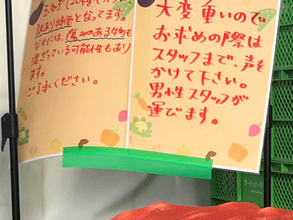 訳あり特価となってます。
なかには、傷みのある物も
混ざっている可能性もあり
ます。
ごうしょください。
大変重いので
お求めの際は
スタッフまで、声を
かけて下さい。
男性スタッフが
運びます。